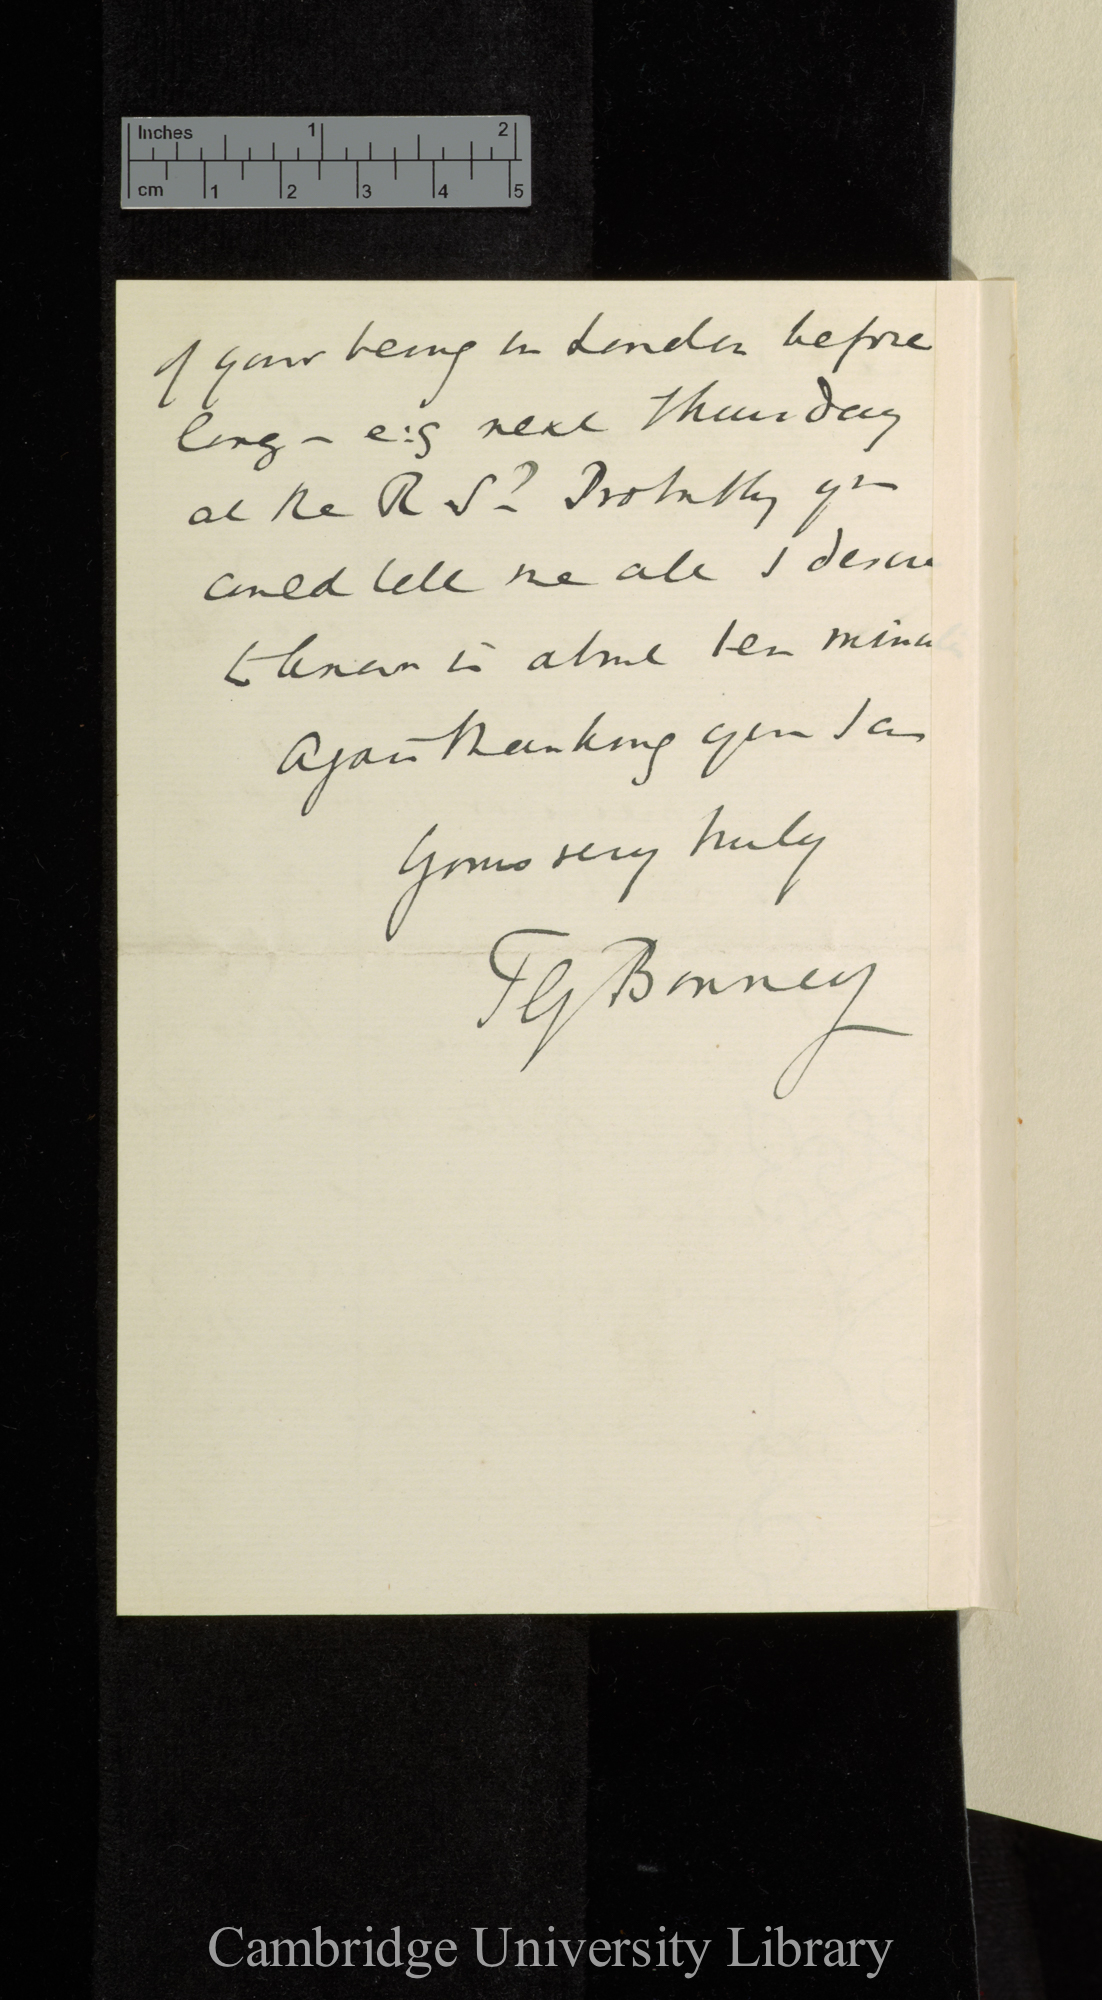 Inches 1 2
cm 1 2 3 4 5
of your being in London before
long – e.g next Thursday
at the R S? Probably you
could tell me all I desire
to know in about ten minutes
Again thanking you I am
Yours very truly
T G Bonney
Cambridge University Library